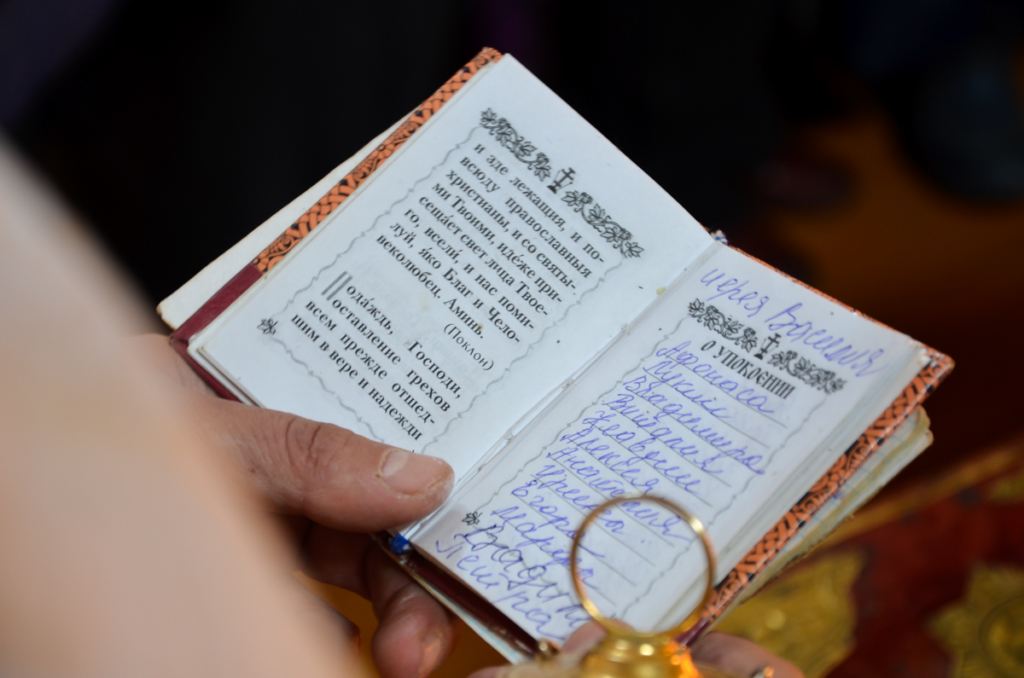 и зде лежащия, и по-
всюду православныя
христианы, и со святы-
ми Твоими, иде́же при-
сеща́ет свет лица Твое-
го, всели́, и нас поми-
луй, яко Благ и Чело-
веколюбец. Аминь.
(Поклон)
Пода́ждь, Господи,
оставление грехов
всем прежде отшед-
шим в вере и надежди
иерея Василия
О УПОКОЕНИИ
Афанаса
Лукии
Владимира
Клавдии
Алексея
Анастасия
Игоря
Марию
Вадима
Петра